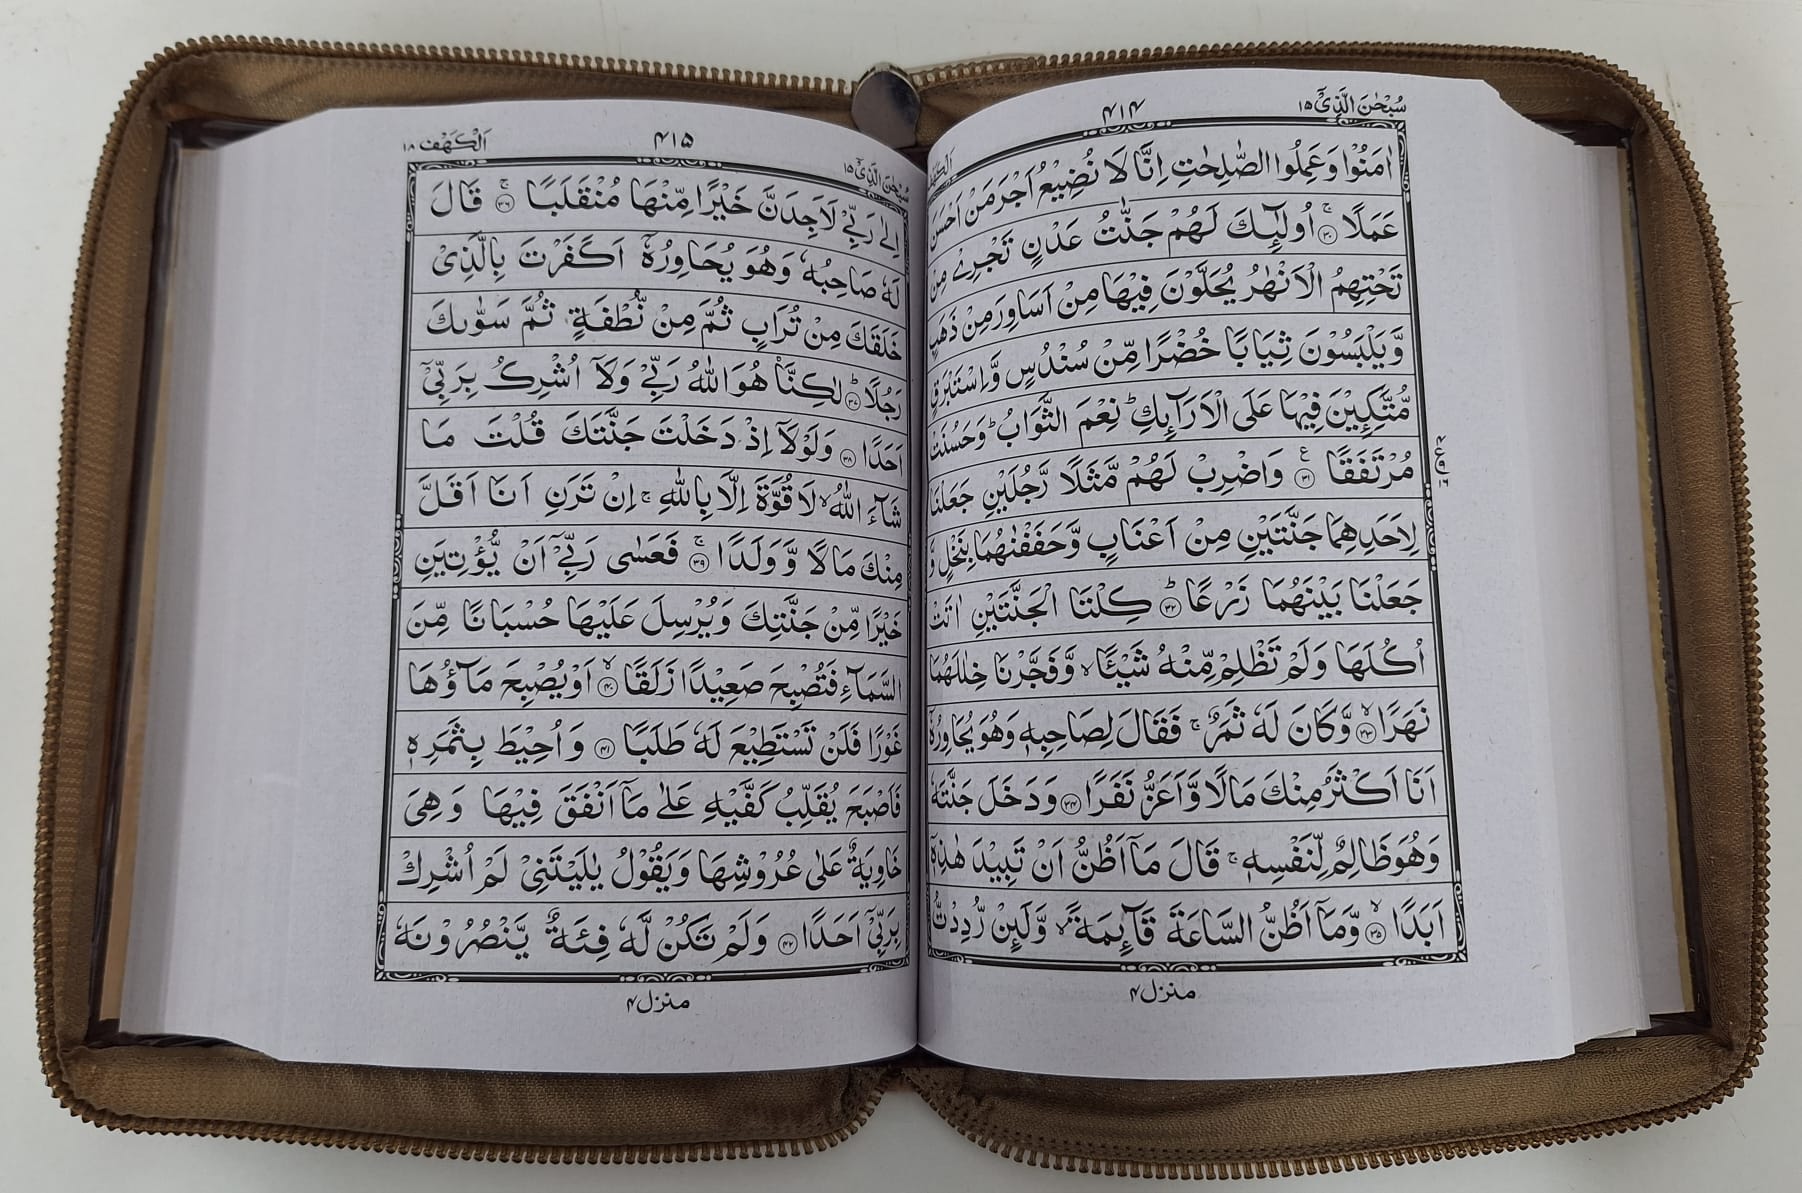 سُبْحٰنَ الَّذِیْۤ ۱۵
۴۱۴
اٰمَنُوْا وَعَمِلُوا الصّٰلِحٰتِ اِنَّا لَا نُضِیْعُ اَجْرَ مَنْ اَحْسَنَ
عَمَلًا ۚ‏﴿۳۰﴾ اُولٰٓىِٕكَ لَهُمْ جَنّٰتُ عَدْنٍ تَجْرِیْ مِنْ
تَحْتِهِمُ الْاَنْهٰرُ یُحَلَّوْنَ فِیْهَا مِنْ اَسَاوِرَ مِنْ ذَهَبٍ
وَّیَلْبَسُوْنَ ثِیَابًا خُضْرًا مِّنْ سُنْدُسٍ وَّاِسْتَبْرَقٍ
مُّتَّكِـِٕیْنَ فِیْهَا عَلَی الْاَرَآىِٕكِ ؕ نِعْمَ الثَّوَابُ ؕ وَحَسُنَتْ
مُرْتَفَقًا ﴿۳۱﴾ ع وَاضْرِبْ لَهُمْ مَّثَلًا رَّجُلَیْنِ جَعَلْنَا
لِاَحَدِهِمَا جَنَّتَیْنِ مِنْ اَعْنَابٍ وَّحَفَفْنٰهُمَا بِنَخْلٍ وَّ
جَعَلْنَا بَیْنَهُمَا زَرْعًا ؕ﴿۳۲﴾ كِلْتَا الْجَنَّتَیْنِ اٰتَتْ
اُكُلَهَا وَلَمْ تَظْلِمْ مِّنْهُ شَیْـًٔا ۙ وَّفَجَّرْنَا خِلٰلَهُمَا
نَهَرًا ۙ﴿۳۳﴾ وَّكَانَ لَهٗ ثَمَرٌ ۚ فَقَالَ لِصَاحِبِهٖ وَهُوَ یُحَاوِرُهٗۤ
اَنَا اَكْثَرُ مِنْكَ مَالًا وَّاَعَزُّ نَفَرًا ﴿۳۴﴾ وَدَخَلَ جَنَّتَهٗ
وَهُوَ ظَالِمٌ لِّنَفْسِهٖ ۚ قَالَ مَاۤ اَظُنُّ اَنْ تَبِیْدَ هٰذِهٖۤ
اَبَدًا ۙ﴿۳۵﴾ وَّمَاۤ اَظُنُّ السَّاعَةَ قَآىِٕمَةً ۙ وَّلَىِٕنْ رُّدِدْتُّ
منزل ۴
سُبْحٰنَ الَّذِیْۤ ۱۵
۴۱۵
اَلْكَهْف ۱۸
اِلٰی رَبِّیْ لَاَجِدَنَّ خَیْرًا مِّنْهَا مُنْقَلَبًا ۚ﴿۳۶﴾ قَالَ
لَهٗ صَاحِبُهٗ وَهُوَ یُحَاوِرُهٗۤ اَكَفَرْتَ بِالَّذِیْ
خَلَقَكَ مِنْ تُرَابٍ ثُمَّ مِنْ نُّطْفَةٍ ثُمَّ سَوّٰىكَ
رَجُلًا ؕ﴿۳۷﴾ لٰكِنَّا۠ هُوَ اللّٰهُ رَبِّیْ وَلَاۤ اُشْرِكُ بِرَبِّیْۤ
اَحَدًا ﴿۳۸﴾ وَلَوْلَاۤ اِذْ دَخَلْتَ جَنَّتَكَ قُلْتَ مَا
شَآءَ اللّٰهُ ۙ لَا قُوَّةَ اِلَّا بِاللّٰهِ ۚ اِنْ تَرَنِ اَنَا اَقَلَّ
مِنْكَ مَالًا وَّوَلَدًا ۚ﴿۳۹﴾ فَعَسٰی رَبِّیْۤ اَنْ یُّؤْتِیَنِ
خَیْرًا مِّنْ جَنَّتِكَ وَیُرْسِلَ عَلَیْهَا حُسْبَانًا مِّنَ
السَّمَآءِ فَتُصْبِحَ صَعِیْدًا زَلَقًا ۙ﴿۴۰﴾ اَوْ یُصْبِحَ مَآؤُهَا
غَوْرًا فَلَنْ تَسْتَطِیْعَ لَهٗ طَلَبًا ﴿۴۱﴾ وَاُحِیْطَ بِثَمَرِهٖ
فَاَصْبَحَ یُقَلِّبُ كَفَّیْهِ عَلٰی مَاۤ اَنْفَقَ فِیْهَا وَهِیَ
خَاوِیَةٌ عَلٰی عُرُوْشِهَا وَیَقُوْلُ یٰلَیْتَنِیْ لَمْ اُشْرِكْ
بِرَبِّیْۤ اَحَدًا ﴿۴۲﴾ وَلَمْ تَكُنْ لَّهٗ فِئَةٌ یَّنْصُرُوْنَهٗ
منزل ۴